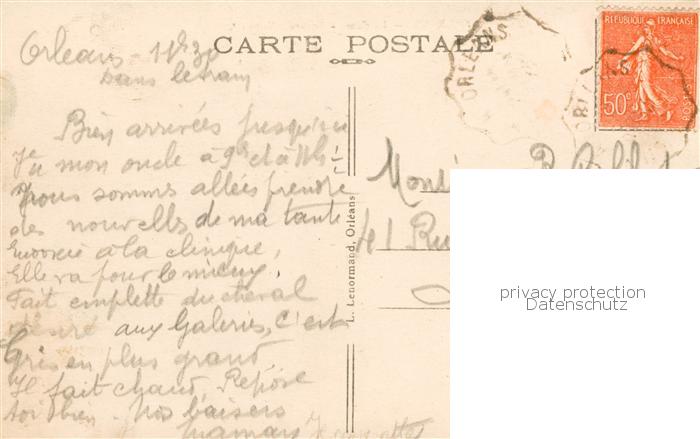 Orléans - 11h30
dans le train
CARTE POSTALE
ORLEANS
REPUBLIQUE FRANÇAISE
50c
POSTES
ORLEANS
Bien arrivées jusqu'ici
Vu mon oncle à 9h et à 11h -
Nous sommes allées prendre
des nouvelles de ma tante
à la clinique,
Elle va pour le mieux.
Fait emplette du cheval
désiré aux Galeries, c'est
Gris en plus grand
Il fait chaud, Repose
toi bien - Nos baisers
Maman
Monsieur R.
41 Ru
L. Lenormand, Orléans
privacy protection
Datenschutz